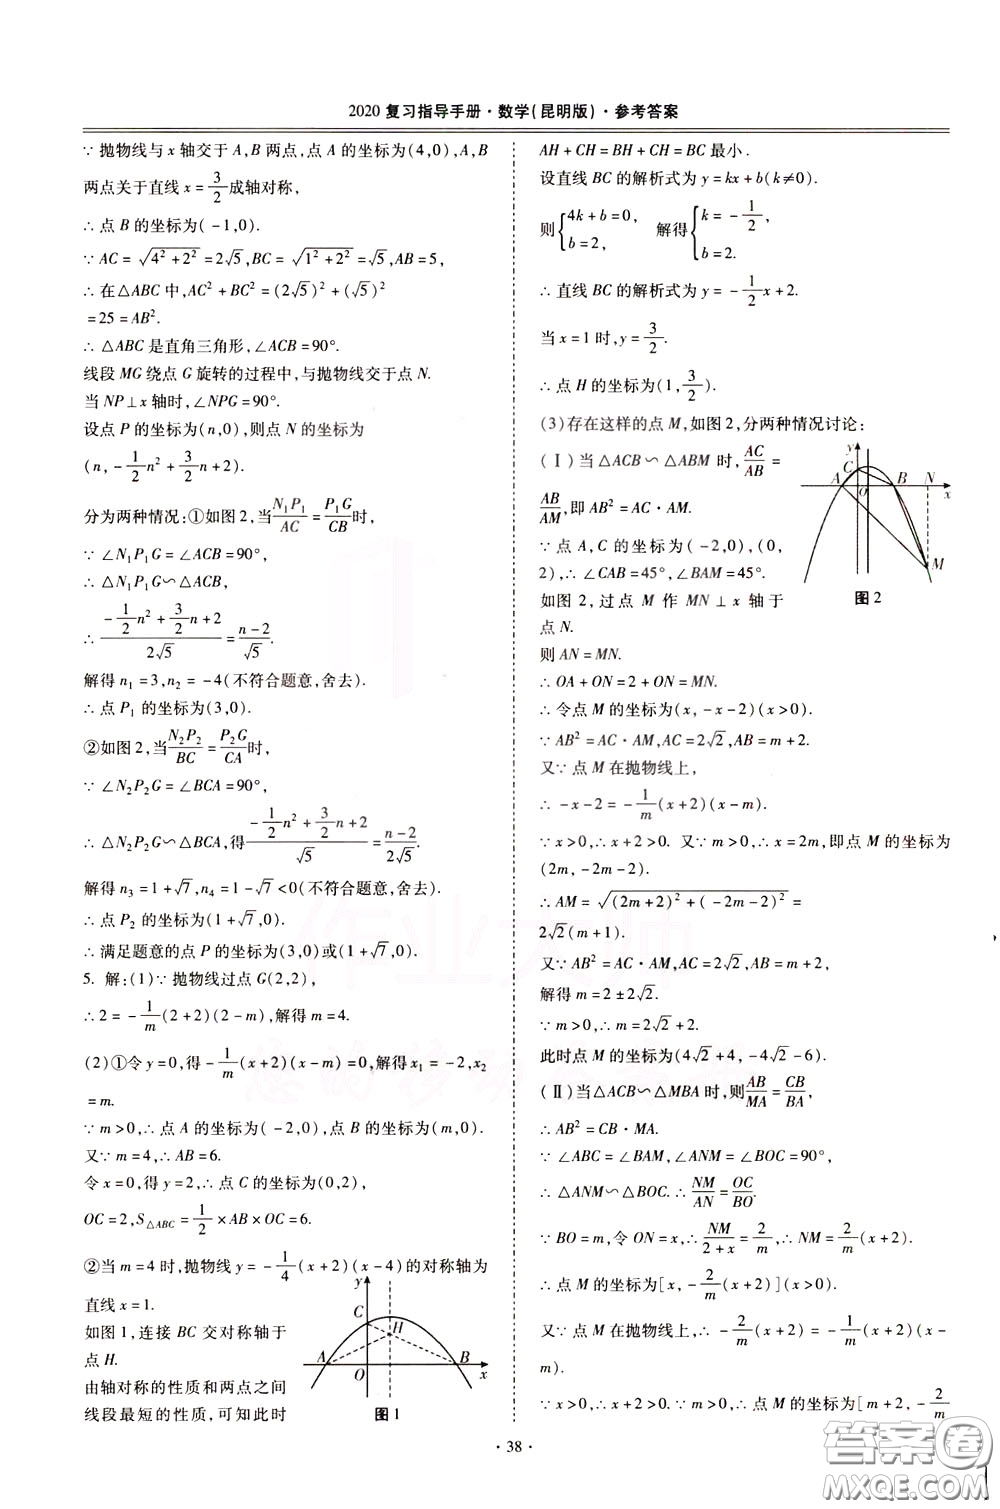 2020 复习指导手册·数学(昆明版)·参考答案
∵ 抛物线与 x 轴交于 A,B 两点,点 A 的坐标为(4,0),A,B
两点关于直线 x = 3/2 成轴对称,
∴ 点 B 的坐标为( -1,0).
∵ AC = √(4² + 2²) = 2√5, BC = √(1² + 2²) = √5, AB = 5,
∴ 在 △ABC 中, AC² + BC² = (2√5)² + (√5)²
= 25 = AB².
∴ △ABC 是直角三角形,∠ACB = 90°.
线段 MG 绕点 G 旋转的过程中,与抛物线交于点 N.
当 NP⊥x 轴时,∠NPG = 90°.
设点 P 的坐标为(n,0),则点 N 的坐标为
(n, -1/2 n² + 3/2 n + 2).
分为两种情况:①如图 2,当 N₁P₁/AC = P₁G/CB 时,
∵ ∠N₁P₁G = ∠ACB = 90°,
∴ △N₁P₁G∽△ACB,
∴ (-1/2 n² + 3/2 n + 2)/(2√5) = (n - 2)/√5.
解得 n₁ = 3, n₂ = -4(不符合题意,舍去).
∴ 点 P₁ 的坐标为(3,0).
②如图 2,当 N₂P₂/BC = P₂G/CA 时,
∵ ∠N₂P₂G = ∠BCA = 90°,
∴ △N₂P₂G∽△BCA,得 (-1/2 n² + 3/2 n + 2)/√5 = (n - 2)/(2√5).
解得 n₃ = 1 + √7, n₄ = 1 - √7 < 0(不符合题意,舍去).
∴ 点 P₂ 的坐标为(1 + √7,0).
∴ 满足题意的点 P 的坐标为(3,0)或(1 + √7,0).
5. 解:(1)∵ 抛物线过点 G(2,2),
∴ 2 = -1/m (2 + 2)(2 - m),解得 m = 4.
(2)①令 y = 0,得 -1/m (x + 2)(x - m) = 0,解得 x₁ = -2, x₂
= m.
∵ m > 0, ∴ 点 A 的坐标为( -2,0),点 B 的坐标为(m,0).
又∵ m = 4, ∴ AB = 6.
令 x = 0,得 y = 2, ∴ 点 C 的坐标为(0,2),
OC = 2, S△ABC = 1/2 × AB × OC = 6.
②当 m = 4 时,抛物线 y = -1/4 (x + 2)(x - 4)的对称轴为
直线 x = 1.
如图 1,连接 BC 交对称轴于
点 H.
由轴对称的性质和两点之间
线段最短的性质,可知此时
y
C
H
A
O
B
x
图 1
AH + CH = BH + CH = BC 最小.
设直线 BC 的解析式为 y = kx + b(k≠0).
则 {4k + b = 0, b = 2, 解得 {k = -1/2, b = 2.
∴ 直线 BC 的解析式为 y = -1/2 x + 2.
当 x = 1 时, y = 3/2.
∴ 点 H 的坐标为(1, 3/2).
(3)存在这样的点 M,如图 2,分两种情况讨论:
(Ⅰ)当 △ACB∽△ABM 时, AC/AB =
AB/AM,即 AB² = AC·AM.
∵ 点 A,C 的坐标为( -2,0),(0,
2), ∴ ∠CAB = 45°,∠BAM = 45°.
如图 2,过点 M 作 MN⊥x 轴于
点 N.
则 AN = MN.
y
C
A
O
B
N
x
M
图 2
∴ OA + ON = 2 + ON = MN.
∴ 令点 M 的坐标为(x, -x - 2)(x > 0).
∵ AB² = AC·AM, AC = 2√2, AB = m + 2.
又∵ 点 M 在抛物线上,
∴ -x - 2 = -1/m (x + 2)(x - m).
∵ x > 0, ∴ x + 2 > 0. 又∵ m > 0, ∴ x = 2m,即点 M 的坐标为
(2m, -2m - 2).
∴ AM = √((2m + 2)² + ( -2m - 2)²) =
2√2(m + 1).
又∵ AB² = AC·AM, AC = 2√2, AB = m + 2,
解得 m = 2 ± 2√2.
∵ m > 0, ∴ m = 2√2 + 2.
此时点 M 的坐标为(4√2 + 4, -4√2 - 6).
(Ⅱ)当 △ACB∽△MBA 时,则 AB/MA = CB/BA,
∴ AB² = CB·MA.
∵ ∠ABC = ∠BAM,∠ANM = ∠BOC = 90°,
∴ △ANM∽△BOC. ∴ NM/AN = OC/BO.
∵ BO = m,令 ON = x, ∴ NM/(2 + x) = 2/m, ∴ NM = 2/m (x + 2).
∴ 点 M 的坐标为[x, -2/m (x + 2)](x > 0).
又∵ 点 M 在抛物线上, ∴ -2/m (x + 2) = -1/m (x + 2)(x -
m).
∵ x > 0, ∴ x = m + 2. ∴ 点 M 的坐标为[m + 2, -2/m
· 38 ·
作业大师
答案圈
MXQE.COM